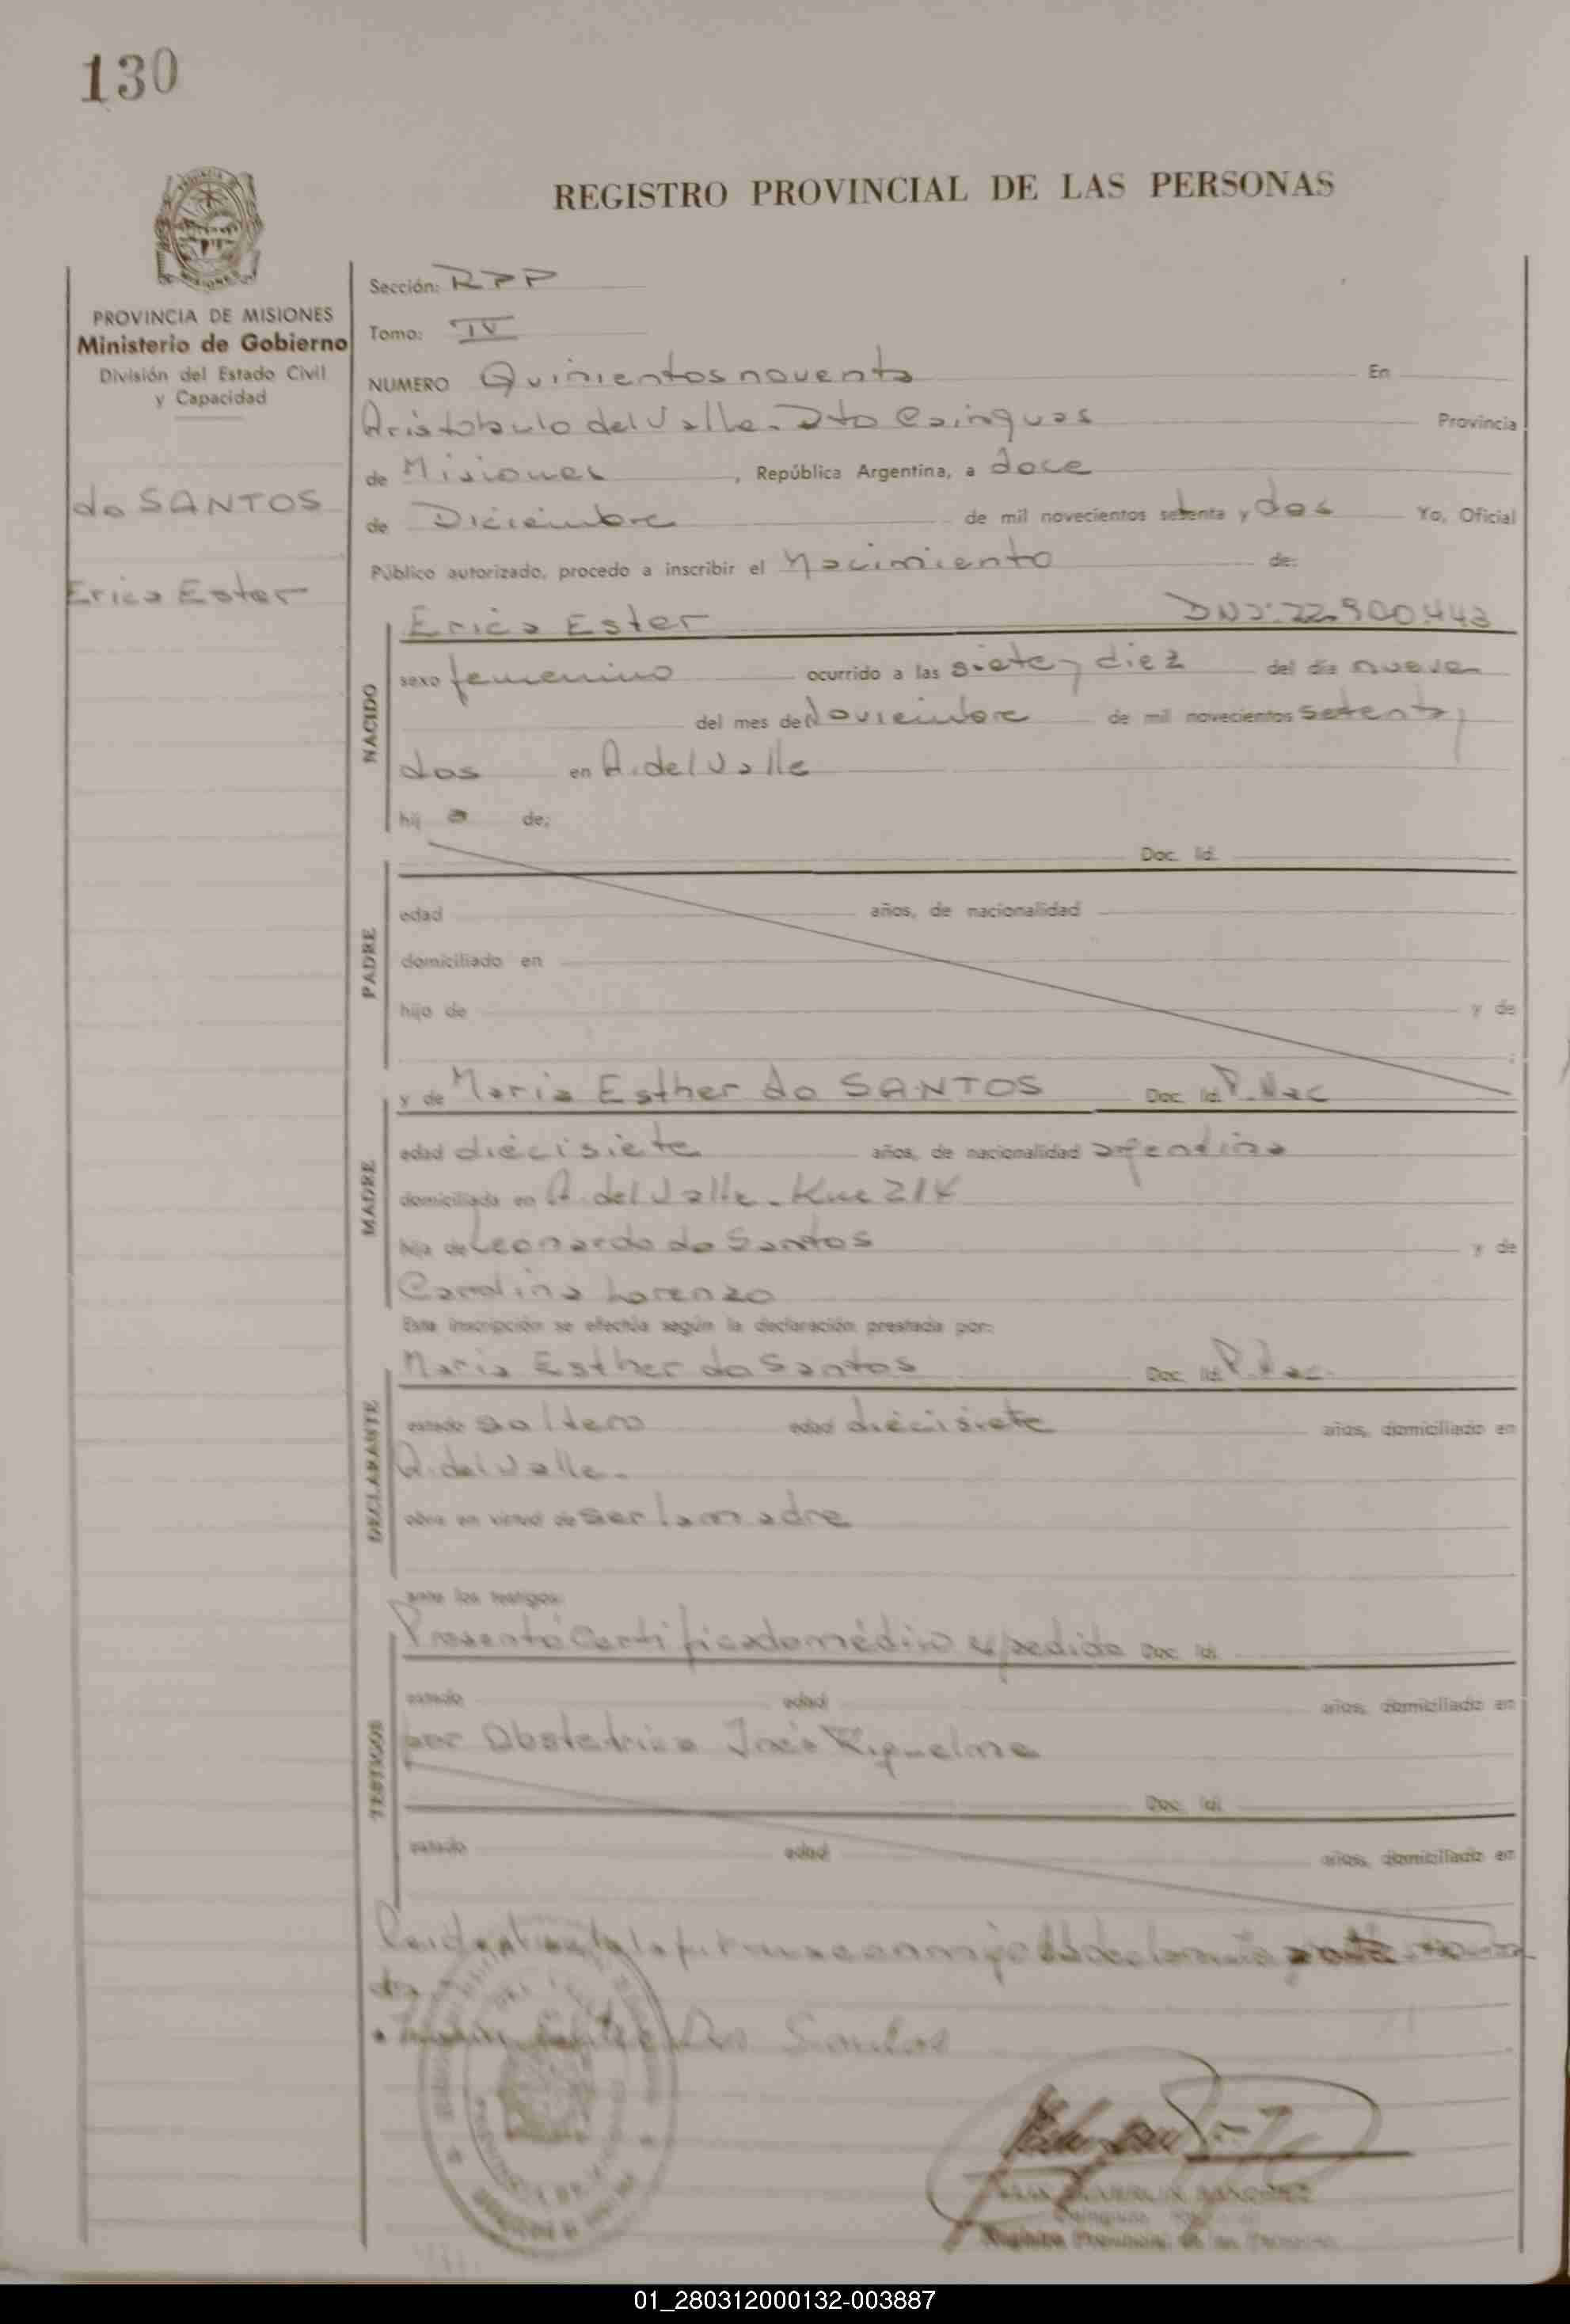 130
REGISTRO PROVINCIAL DE LAS PERSONAS
PROVINCIA DE MISIONES
Ministerio de Gobierno
División del Estado Civil
y Capacidad
do SANTOS
Erica Ester
Sección: RPP
Tomo: IV
NUMERO Quinientos noventa En
Aristobulo del Valle - Dto Cainguas Provincia
de Misiones, República Argentina, a doce
de Diciembre de mil novecientos setenta y dos Yo, Oficial
Público autorizado, procedo a inscribir el Nacimiento de:
NACIDO
Erica Ester DNI: 22.900.443
sexo femenino ocurrido a las siete y diez del día nueve
del mes de Noviembre de mil novecientos setenta y
dos en A. del Valle
hij a de:
PADRE
Doc. Id.
edad años, de nacionalidad
domiciliado en
hijo de y de
MADRE
y de Maria Esther do SANTOS Doc. Id. P. Nac
edad diécisiete años, de nacionalidad argentina
domiciliada en A. del Valle - Km 214
hija de Leonardo do Santos y de
Carolina Lorenzo
Esta inscripción se efectúa según la declaración prestada por:
DECLARANTE
Maria Esther do Santos Doc. Id. P. Nac.
estado soltera edad diécisiete años, domiciliado en
A. del Valle -
obra en virtud de ser la madre
ante los testigos:
TESTIGOS
Presentó Certificado médico expedido Doc. Id.
estado edad años, domiciliado en
por Obstetrica Inés Riquelme
Doc. Id.
estado edad años, domiciliado en
Leida el acta la firma conmigo la declarante
Santos
Registro Provincial de las Personas
01_280312000132-003887